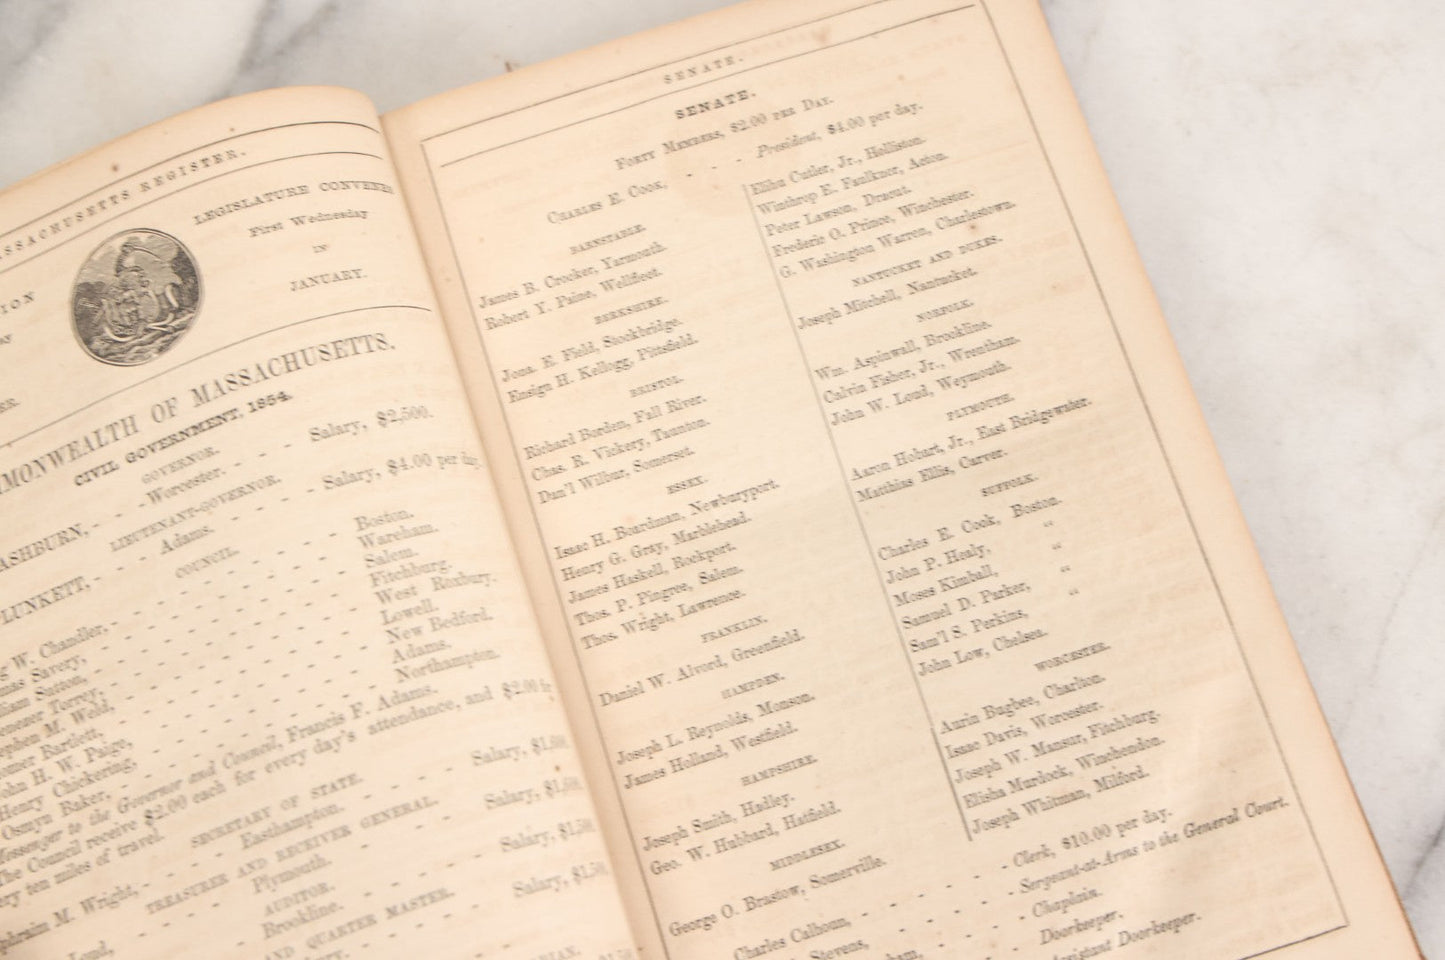 MASSACHUSETTS REGISTER.
LEGISLATURE CONVENES
First Wednesday
IN
JANUARY.
COMMONWEALTH OF MASSACHUSETTS.
CIVIL GOVERNMENT, 1854.
GOVERNOR.
WASHBURN, - - - Worcester. - - - Salary, $2,500.
LIEUTENANT-GOVERNOR.
PLUNKETT, - - - Adams. - - - Salary, $4.00 per day.
COUNCIL.
W. Chandler, - - - Boston.
Savery, - - - Wareham.
Sutton, - - - Salem.
Torrey, - - - Fitchburg.
Stephen M. Weld, - - - West Roxbury.
Homer Bartlett, - - - Lowell.
John H. W. Paige, - - - New Bedford.
Henry Chickering, - - - Adams.
Osmyn Baker, - - - Northampton.
Messenger to the Governor and Council, Francis F. Adams.
The Council receive $2.00 each for every day's attendance, and $2.00 for
every ten miles of travel.
SECRETARY OF STATE.
Ephraim M. Wright, - - - Easthampton. - - - Salary,
TREASURER AND RECEIVER GENERAL.
Plymouth. - - - Salary,
AUDITOR.
Brookline. - - - Salary,
AND QUARTER MASTER.
Salary,
SENATE.
SENATE.
FORTY MEMBERS, $2.00 PER DAY.
CHARLES E. COOK, - - - President, $4.00 per day.
BARNSTABLE.
James B. Crocker, Yarmouth.
Robert Y. Paine, Wellfleet.
BERKSHIRE.
Jona. E. Field, Stockbridge.
Ensign H. Kellogg, Pittsfield.
BRISTOL.
Richard Borden, Fall River.
Chas. R. Vickery, Taunton.
Dan'l Wilbur, Somerset.
ESSEX.
Isaac H. Boardman, Newburyport.
Henry G. Gray, Marblehead.
James Haskell, Rockport.
Thos. P. Pingree, Salem.
Thos. Wright, Lawrence.
FRANKLIN.
Daniel W. Alvord, Greenfield.
HAMPDEN.
Joseph L. Reynolds, Monson.
James Holland, Westfield.
HAMPSHIRE.
Joseph Smith, Hadley.
Geo. W. Hubbard, Hatfield.
MIDDLESEX.
George O. Brastow, Somerville.
Elihu Cutler, Jr., Holliston.
Winthrop E. Faulkner, Acton.
Peter Lawson, Dracut.
Frederic O. Prince, Winchester.
G. Washington Warren, Charlestown.
NANTUCKET AND DUKES.
Joseph Mitchell, Nantucket.
NORFOLK.
Wm. Aspinwall, Brookline.
Calvin Fisher, Jr., Wrentham.
John W. Loud, Weymouth.
PLYMOUTH.
Aaron Hobart, Jr., East Bridgewater.
Matthias Ellis, Carver.
SUFFOLK.
Charles E. Cook, Boston.
John P. Healy, "
Moses Kimball, "
Samuel D. Parker, "
Sam'l S. Perkins, "
John Low, Chelsea.
WORCESTER.
Aurin Bugbee, Charlton.
Isaac Davis, Worcester.
Joseph W. Mansur, Fitchburg.
Elisha Murdock, Winchendon.
Joseph Whitman, Milford.
Charles Calhoun, - - - Clerk, $10.00 per day.
Stevens, - - - Sergeant-at-Arms to the General Court.
- - - Chaplain.
Doorkeeper.
Assistant Doorkeeper.